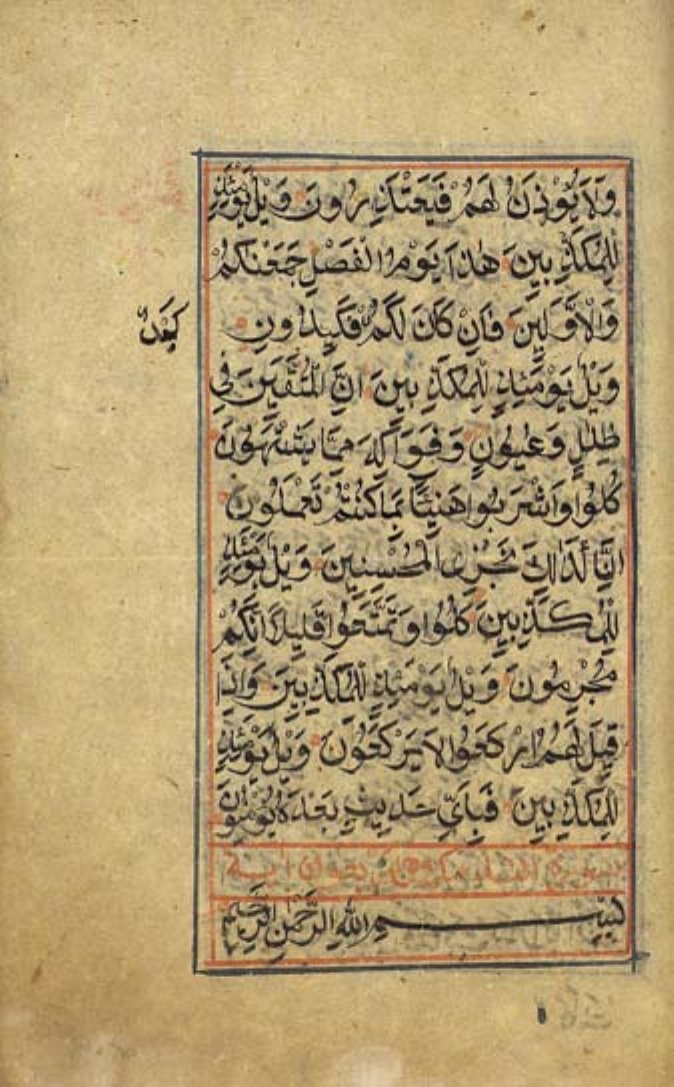 وَلَا يُؤْذَنُ لَهُمْ فَيَعْتَذِرُونَ وَيْلٌ يَوْمَئِذٍ
لِلْمُكَذِّبِينَ هٰذَا يَوْمُ الْفَصْلِ جَمَعْنَاكُمْ
وَالْاَوَّلِينَ فَاِنْ كَانَ لَكُمْ فَكِيدُونِ
كَيْدٌ
وَيْلٌ يَوْمَئِذٍ لِلْمُكَذِّبِينَ اِنَّ الْمُتَّقِينَ فِي
ظِلٰلٍ وَعُيُونٍ وَفَوَاكِهَ مِمَّا يَشْتَهُونَ
كُلُوا وَاشْرَبُوا هَنِيئًا بِمَا كُنْتُمْ تَعْمَلُونَ
اِنَّا كَذَالِكَ نَجْزِي الْمُحْسِنِينَ وَيْلٌ يَوْمَئِذٍ
لِلْمُكَذِّبِينَ كُلُوا وَتَمَتَّعُوا قَلِيلًا اِنَّكُمْ
مُجْرِمُونَ وَيْلٌ يَوْمَئِذٍ لِلْمُكَذِّبِينَ وَاِذَا
قِيلَ لَهُمُ ارْكَعُوا لَا يَرْكَعُونَ وَيْلٌ يَوْمَئِذٍ
لِلْمُكَذِّبِينَ فَبِاَيِّ حَدِيثٍ بَعْدَهُ يُؤْمِنُونَ
سورة النبا مكية اربعون اية
بِسْمِ اللّٰهِ الرَّحْمٰنِ الرَّحِيمِ